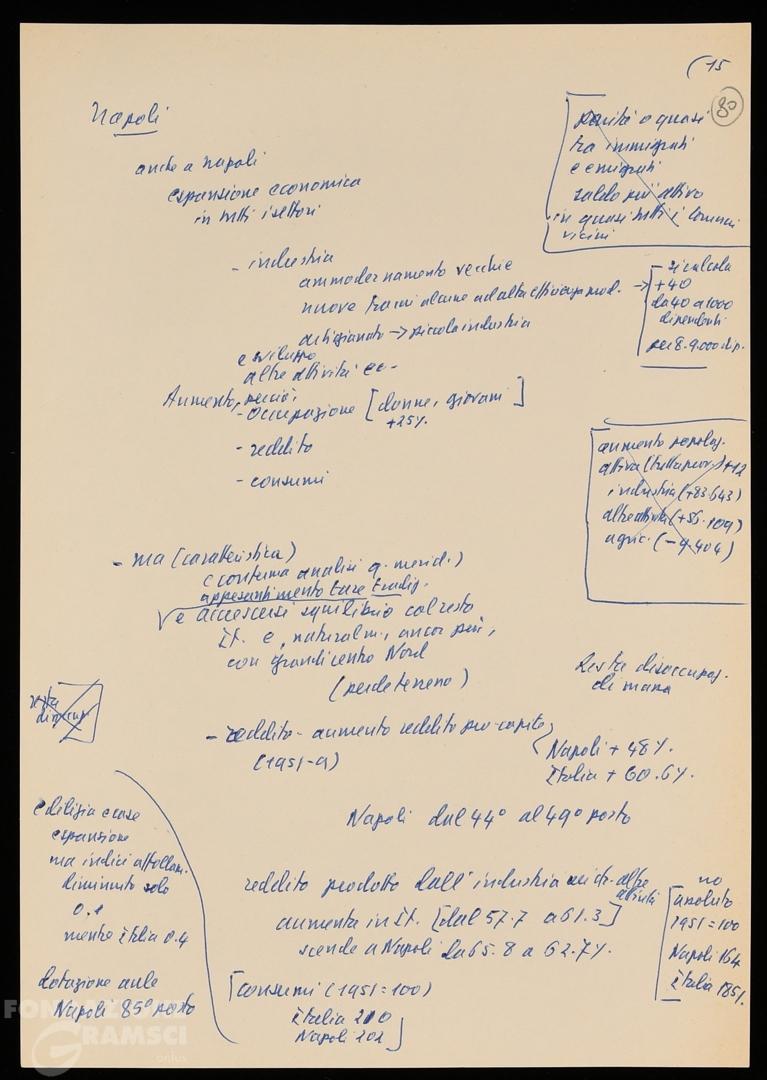 (15
80
Napoli
anche a Napoli
espansione economica
in tutti i settori
parità o quasi
tra immigrati
e emigrati
saldo più attivo
in quasi tutti i comuni
vicini
- industria
ammodernamento vecchie
nuove
artigianato → piccola industria
e sviluppo
altre attività ec-
→ - si calcola
+40
da 40 a 1000
dipendenti
per 8-9.000 dip.
Aumento, perciò,
- occupazione [donne, giovani]
+25%
- reddito
- consumi
aumento popolaz.
attiva (tutta prov.) +12
industria (+83.643)
altre attività (+56.109)
agric. (-9.404)
- ma (caratteristica)
e conferma analisi q. merid.)
appesantimento tare tradiz.
e accrescersi squilibrio col resto
It. e, naturalm., ancor più,
con grandi centro Nord
(perde terreno)
Resta disoccupaz.
di massa
resta
disoccup
- reddito - aumento reddito pro-capite
(1951-9)
Napoli + 48%.
Italia + 60.6%.
Napoli dal 44° al 49° posto
edilizia case
espansione
ma indici affollam.
diminuito solo
0.1
mentre Italia 0.4
dotazione aule
Napoli 85° posto
reddito prodotto dall'industria altre
attività
aumenta in It. [dal 57.7 a 61.3]
scende a Napoli da 65.8 a 62.7%.
no
[assoluto
1951=100
Napoli 164
Italia 185%.
[consumi (1951=100)
Italia 210
Napoli 202]
FONDAZIONE
GRAMSCI
onlus